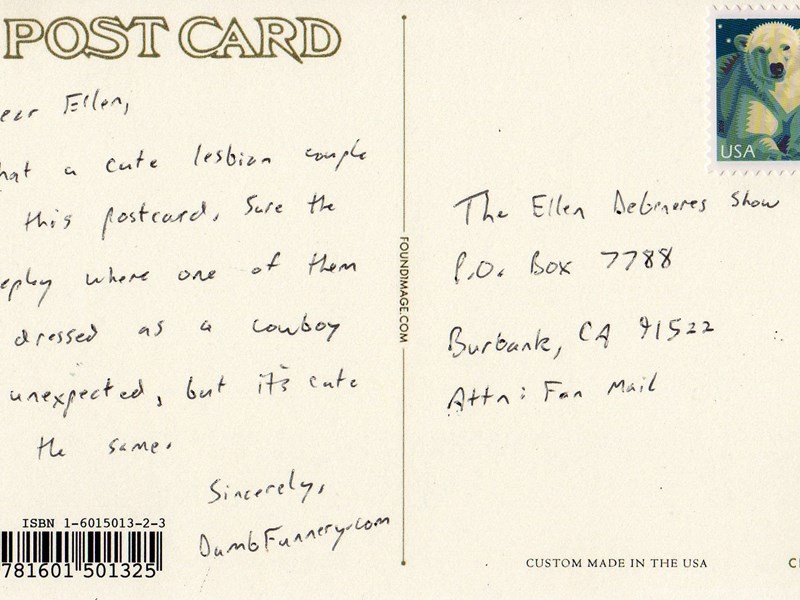 POST CARD
USA
ear Ellen,
hat a cute lesbian couple
this postcard. Sure the
eplay where one of them
dressed as a cowboy
unexpected, but it's cute
the same.
Sincerely,
DumbFunnery.com
The Ellen Degeneres Show
P.O. Box 7788
Burbank, CA 91522
Attn: Fan Mail
FOUNDIMAGE.COM
ISBN 1-6015013-2-3
781601 501325
CUSTOM MADE IN THE USA